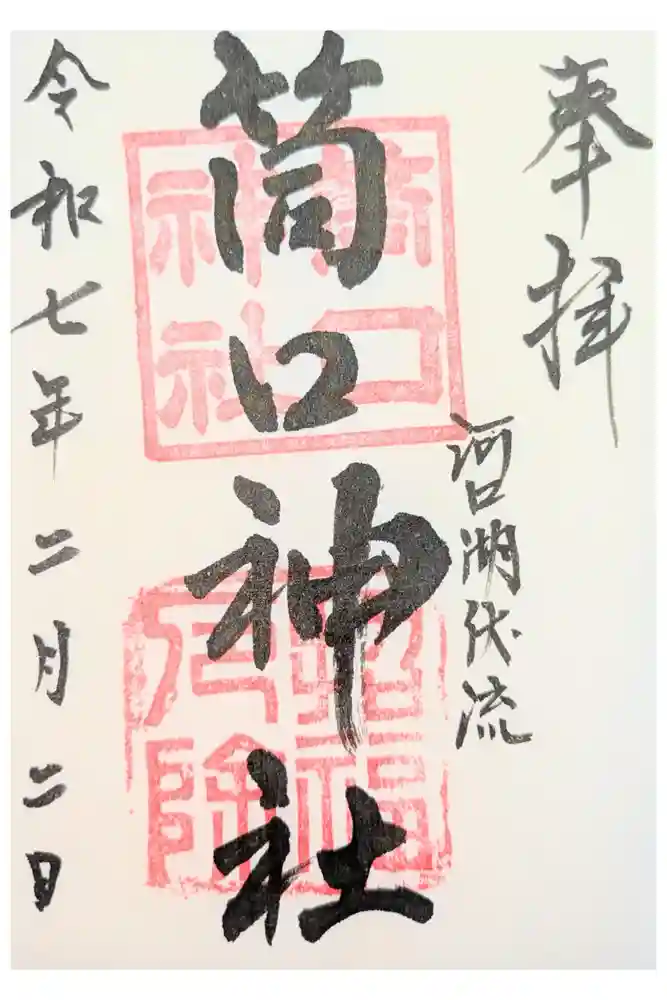 奉拝
河口湖伏流
筒口神社
筒口
神社
令和七年二月二日